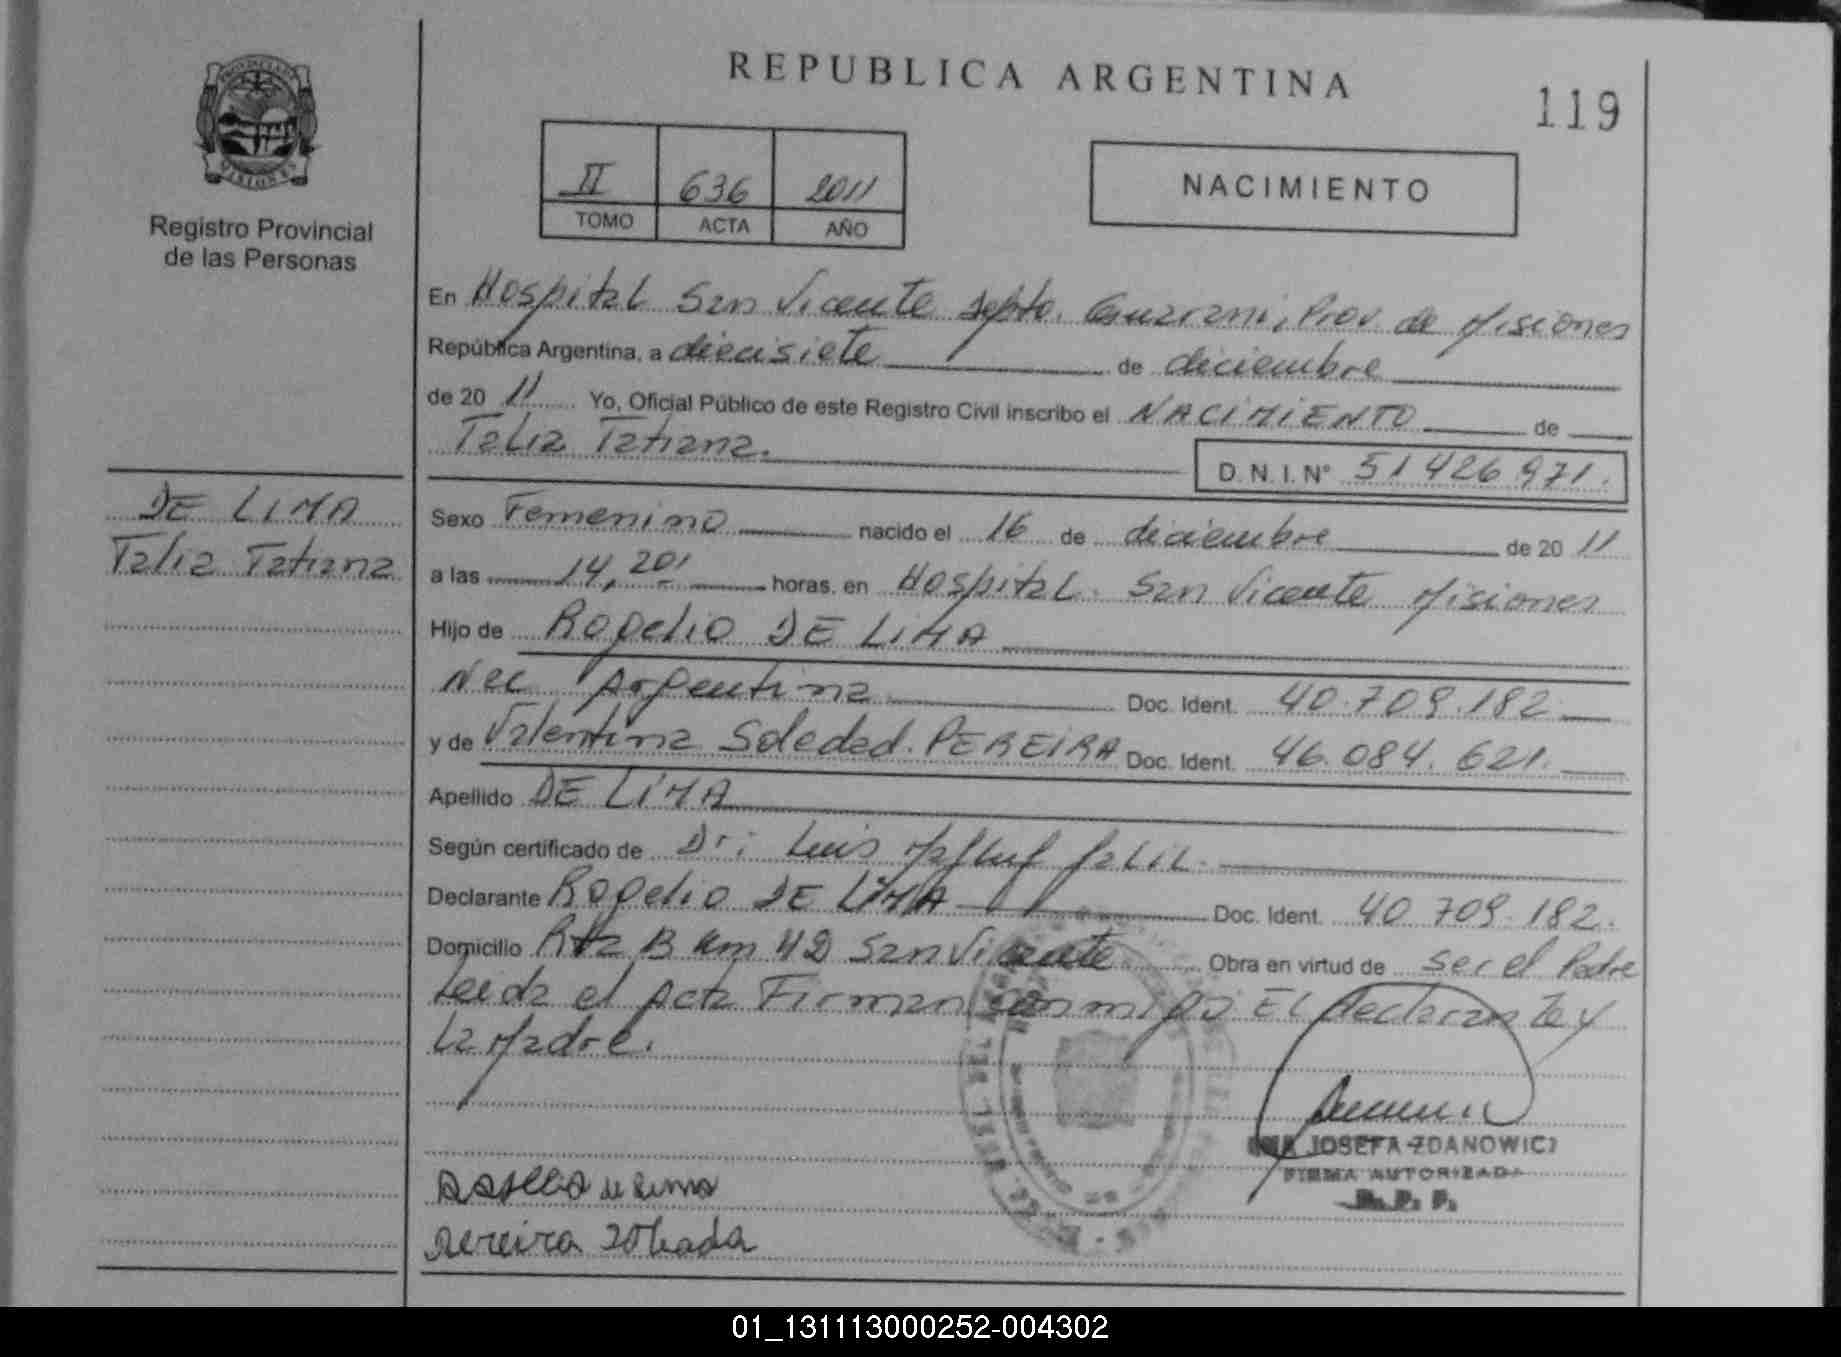 REPUBLICA ARGENTINA
119
PROVINCIA DE
MISIONES
Registro Provincial
de las Personas
II 636 2011
TOMO ACTA AÑO
NACIMIENTO
En Hospital San Vicente Depto. Guarani, Prov. de Misiones
República Argentina, a diecisiete de diciembre
de 20 11 Yo, Oficial Público de este Registro Civil inscribo el NACIMIENTO de
Talia Tatiana.
D.N.I. N° 51426971.
DE LIMA
Talia Tatiana
Sexo Femenino nacido el 16 de diciembre de 20 11
a las 14,20' horas. en Hospital San Vicente Misiones
Hijo de Rogelio DE LIMA
Nac Argentina Doc. Ident. 40.709.182
y de Valentina Soledad PEREIRA Doc. Ident. 46.084.621.
Apellido DE LIMA
Según certificado de Dr: Luis
Declarante Rogelio DE LIMA Doc. Ident. 40 709.182.
Domicilio Rta 13 Km 42 San Vicente Obra en virtud de ser el Padre
Leida el Acta Firman conmigo El declarante y
La Madre.
JOSEFA ZDANOWICZ
FIRMA AUTORIZADA
R. P. P.
de Lima
Pereira
01_131113000252-004302